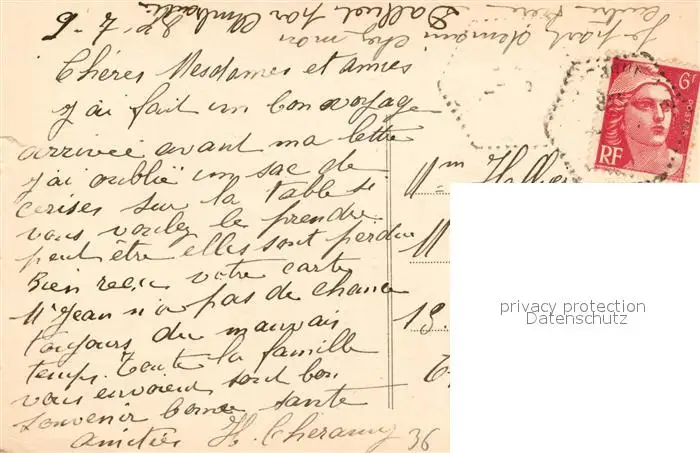 Je pars demain chez mon
Dalliot par Ambault
6-7-
Chéres Mesdames et amies
J'ai fait un bon voyage
arrivée avant ma lettre
J'ai oublié un sac de
cerises sur la table si
vous voulez le prendre
peut être elles sont perdue
Bien reçu votre carte
Mr Jean n'a pas de chance
toujours du mauvais
temps. Toute la famille
vous envoient sont bon
souvenir bonne sante
amitiés H. Cheramy 36
Mme
19.
6F
POSTES
RF
privacy protection
Datenschutz